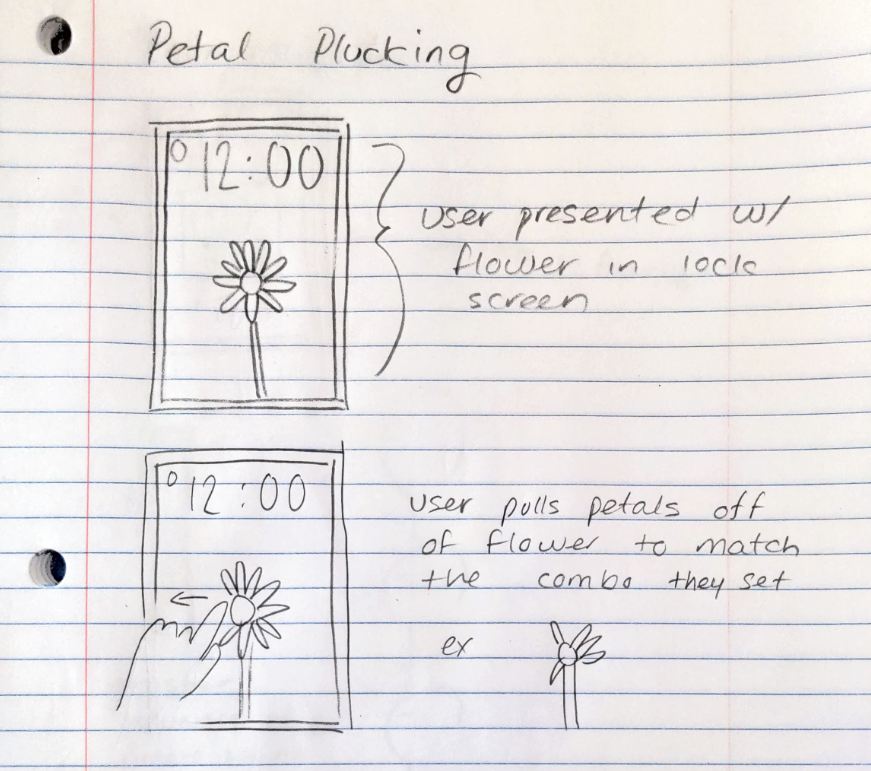 Petal Plucking
12:00
user presented w/
flower in lock
screen
12:00
user pulls petals off
of flower to match
the combo they set
ex